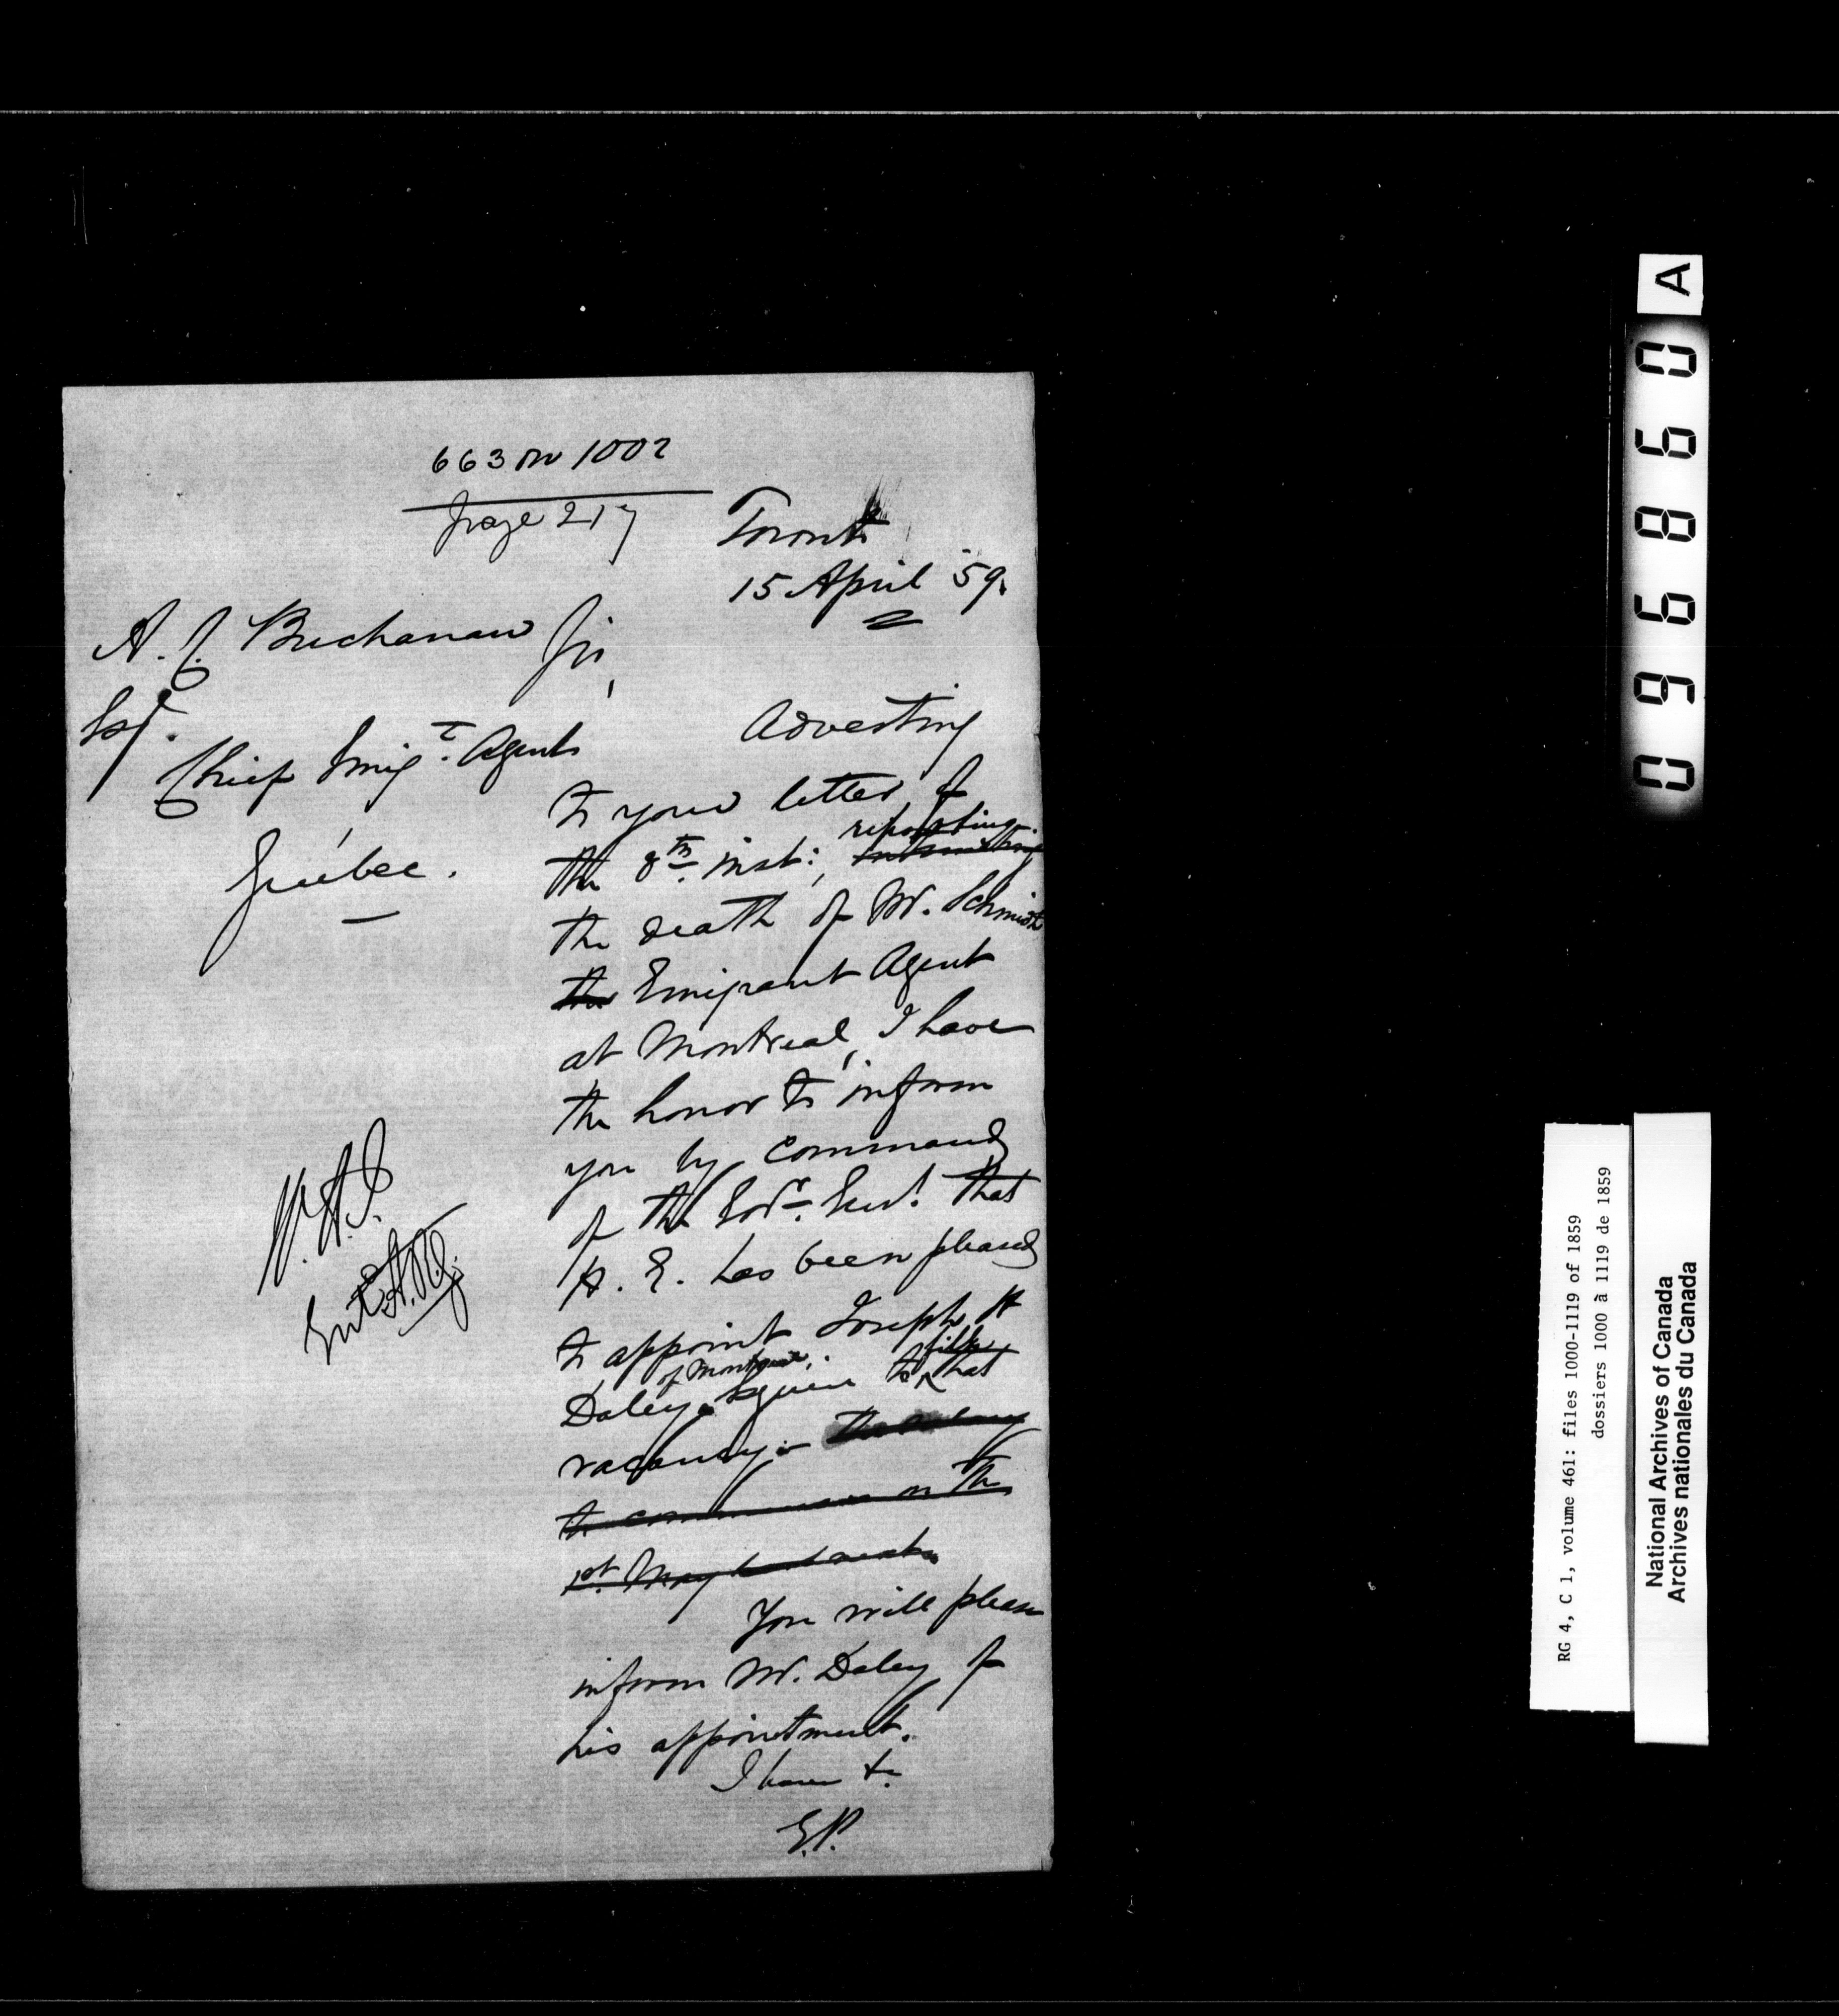 663 on 1002
page 217
Toronto
15 April 59.
A. C. Buchanan
Esq.
Chief Emigt. Agent
Quebec.
Sir,
Adverting
to your letter of
the 8th inst:, reporting
the death of Mr. Schmidt
the Emigrant Agent
at Montreal, I have
the honor to inform
you by command
of the Govr. Genl. that
H. E. has been pleased
to appoint Joseph H
Daley of Montreal, Esquire to fill that
vacancy. the salary
to commence on the
1st. May
You will please
inform Mr. Daley of
his appointment.
I have &c
E.P.
Entd
0 9 6 8 6 0 A
RG 4, C 1, volume 461: files 1000-1119 of 1859
dossiers 1000 à 1119 de 1859
National Archives of Canada
Archives nationales du Canada